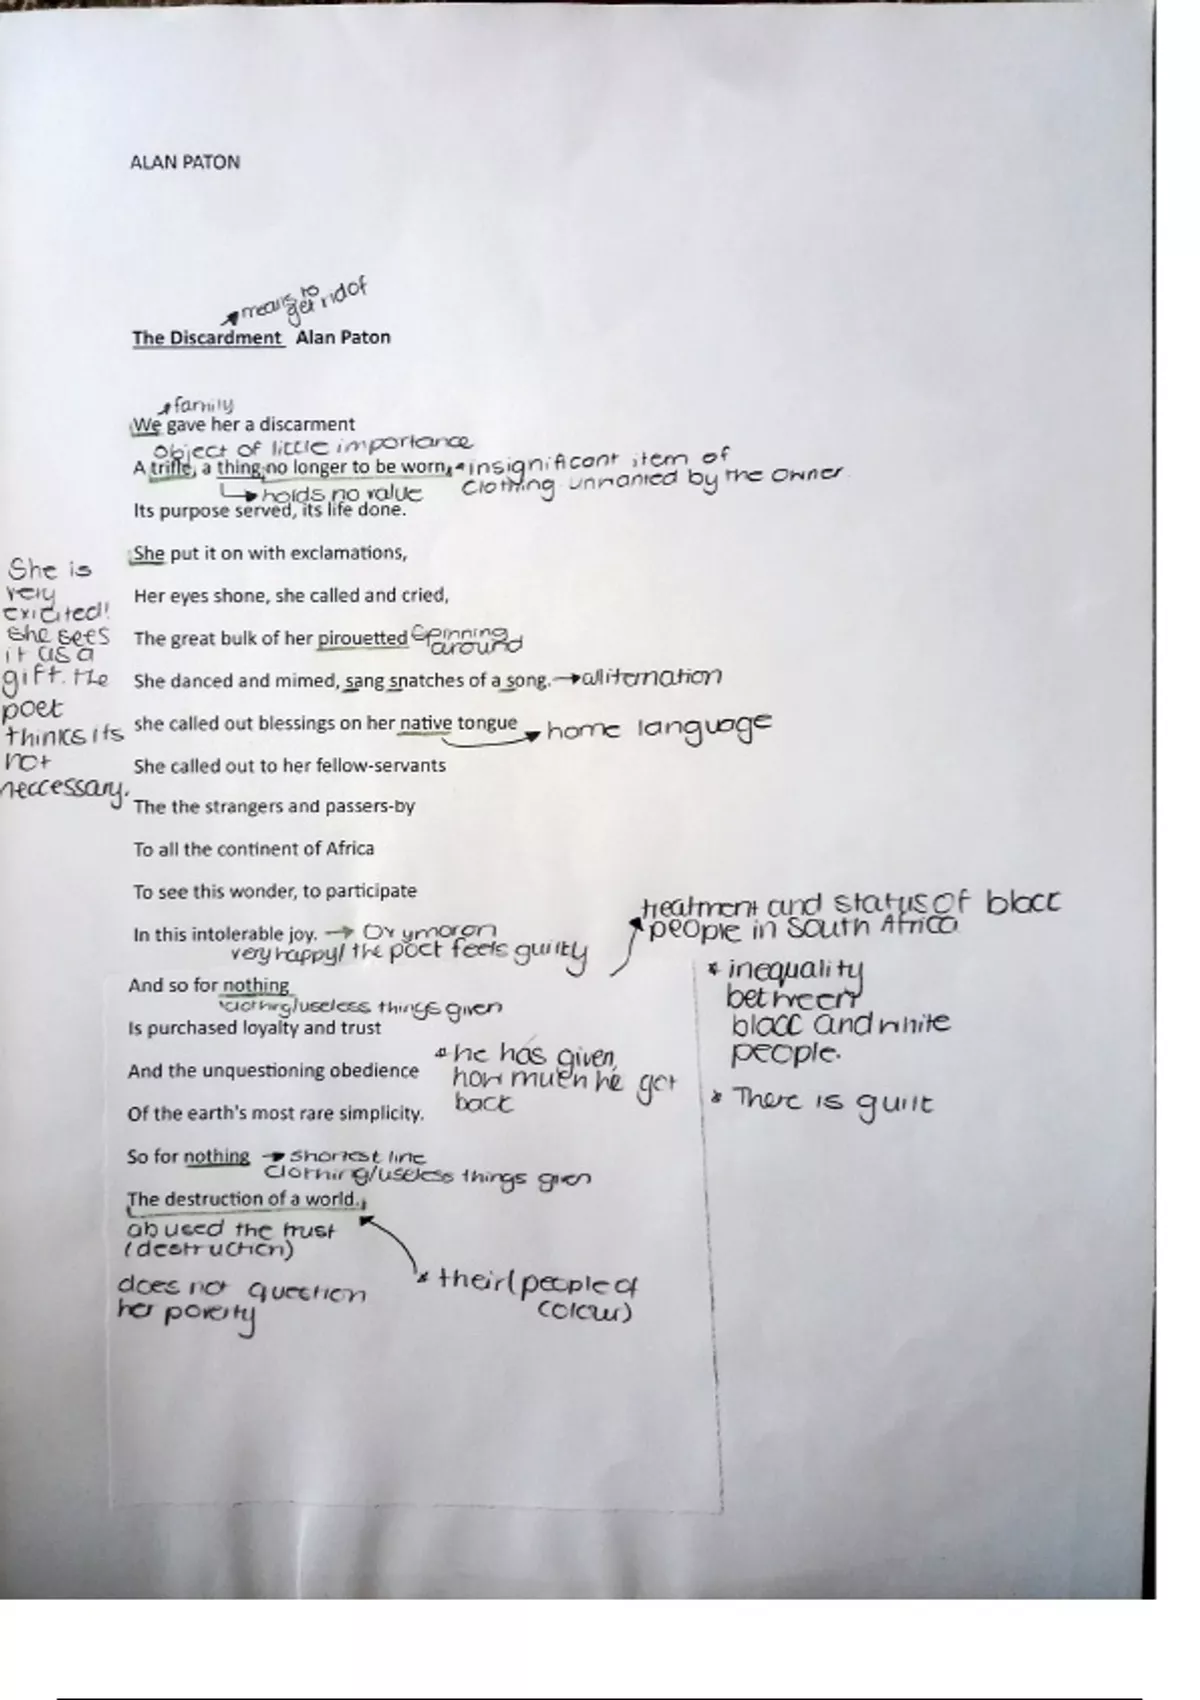 ALAN PATON
means to
get rid of
The Discardment Alan Paton
family
We gave her a discarment
Object of little importance
A trifle, a thing no longer to be worn, insignificant item of
clothing unwanted by the owner.
holds no value
Its purpose served, its life done.
She put it on with exclamations,
Her eyes shone, she called and cried,
The great bulk of her pirouetted spinning
around
She danced and mimed, sang snatches of a song. → alliternation
she called out blessings on her native tongue → home language
She is
very
exicited!
she sees
it as a
gift. the
poet
thinks its
not
neccessary.
She called out to her fellow-servants
The the strangers and passers-by
To all the continent of Africa
To see this wonder, to participate
In this intolerable joy. → Oxymoron
very happy/ the poet feels guilty
treatment and status of black
people in South Africa
* inequality
between
black and white
people.
* There is guilt
And so for nothing
clothing/useless things given
Is purchased loyalty and trust
And the unquestioning obedience
* he has given,
how much he got
back
Of the earth's most rare simplicity.
So for nothing → shortest line
Clothing/useless things given
The destruction of a world.
abused the trust
(destruction)
does not question
her poverty
* their (people of
colour)